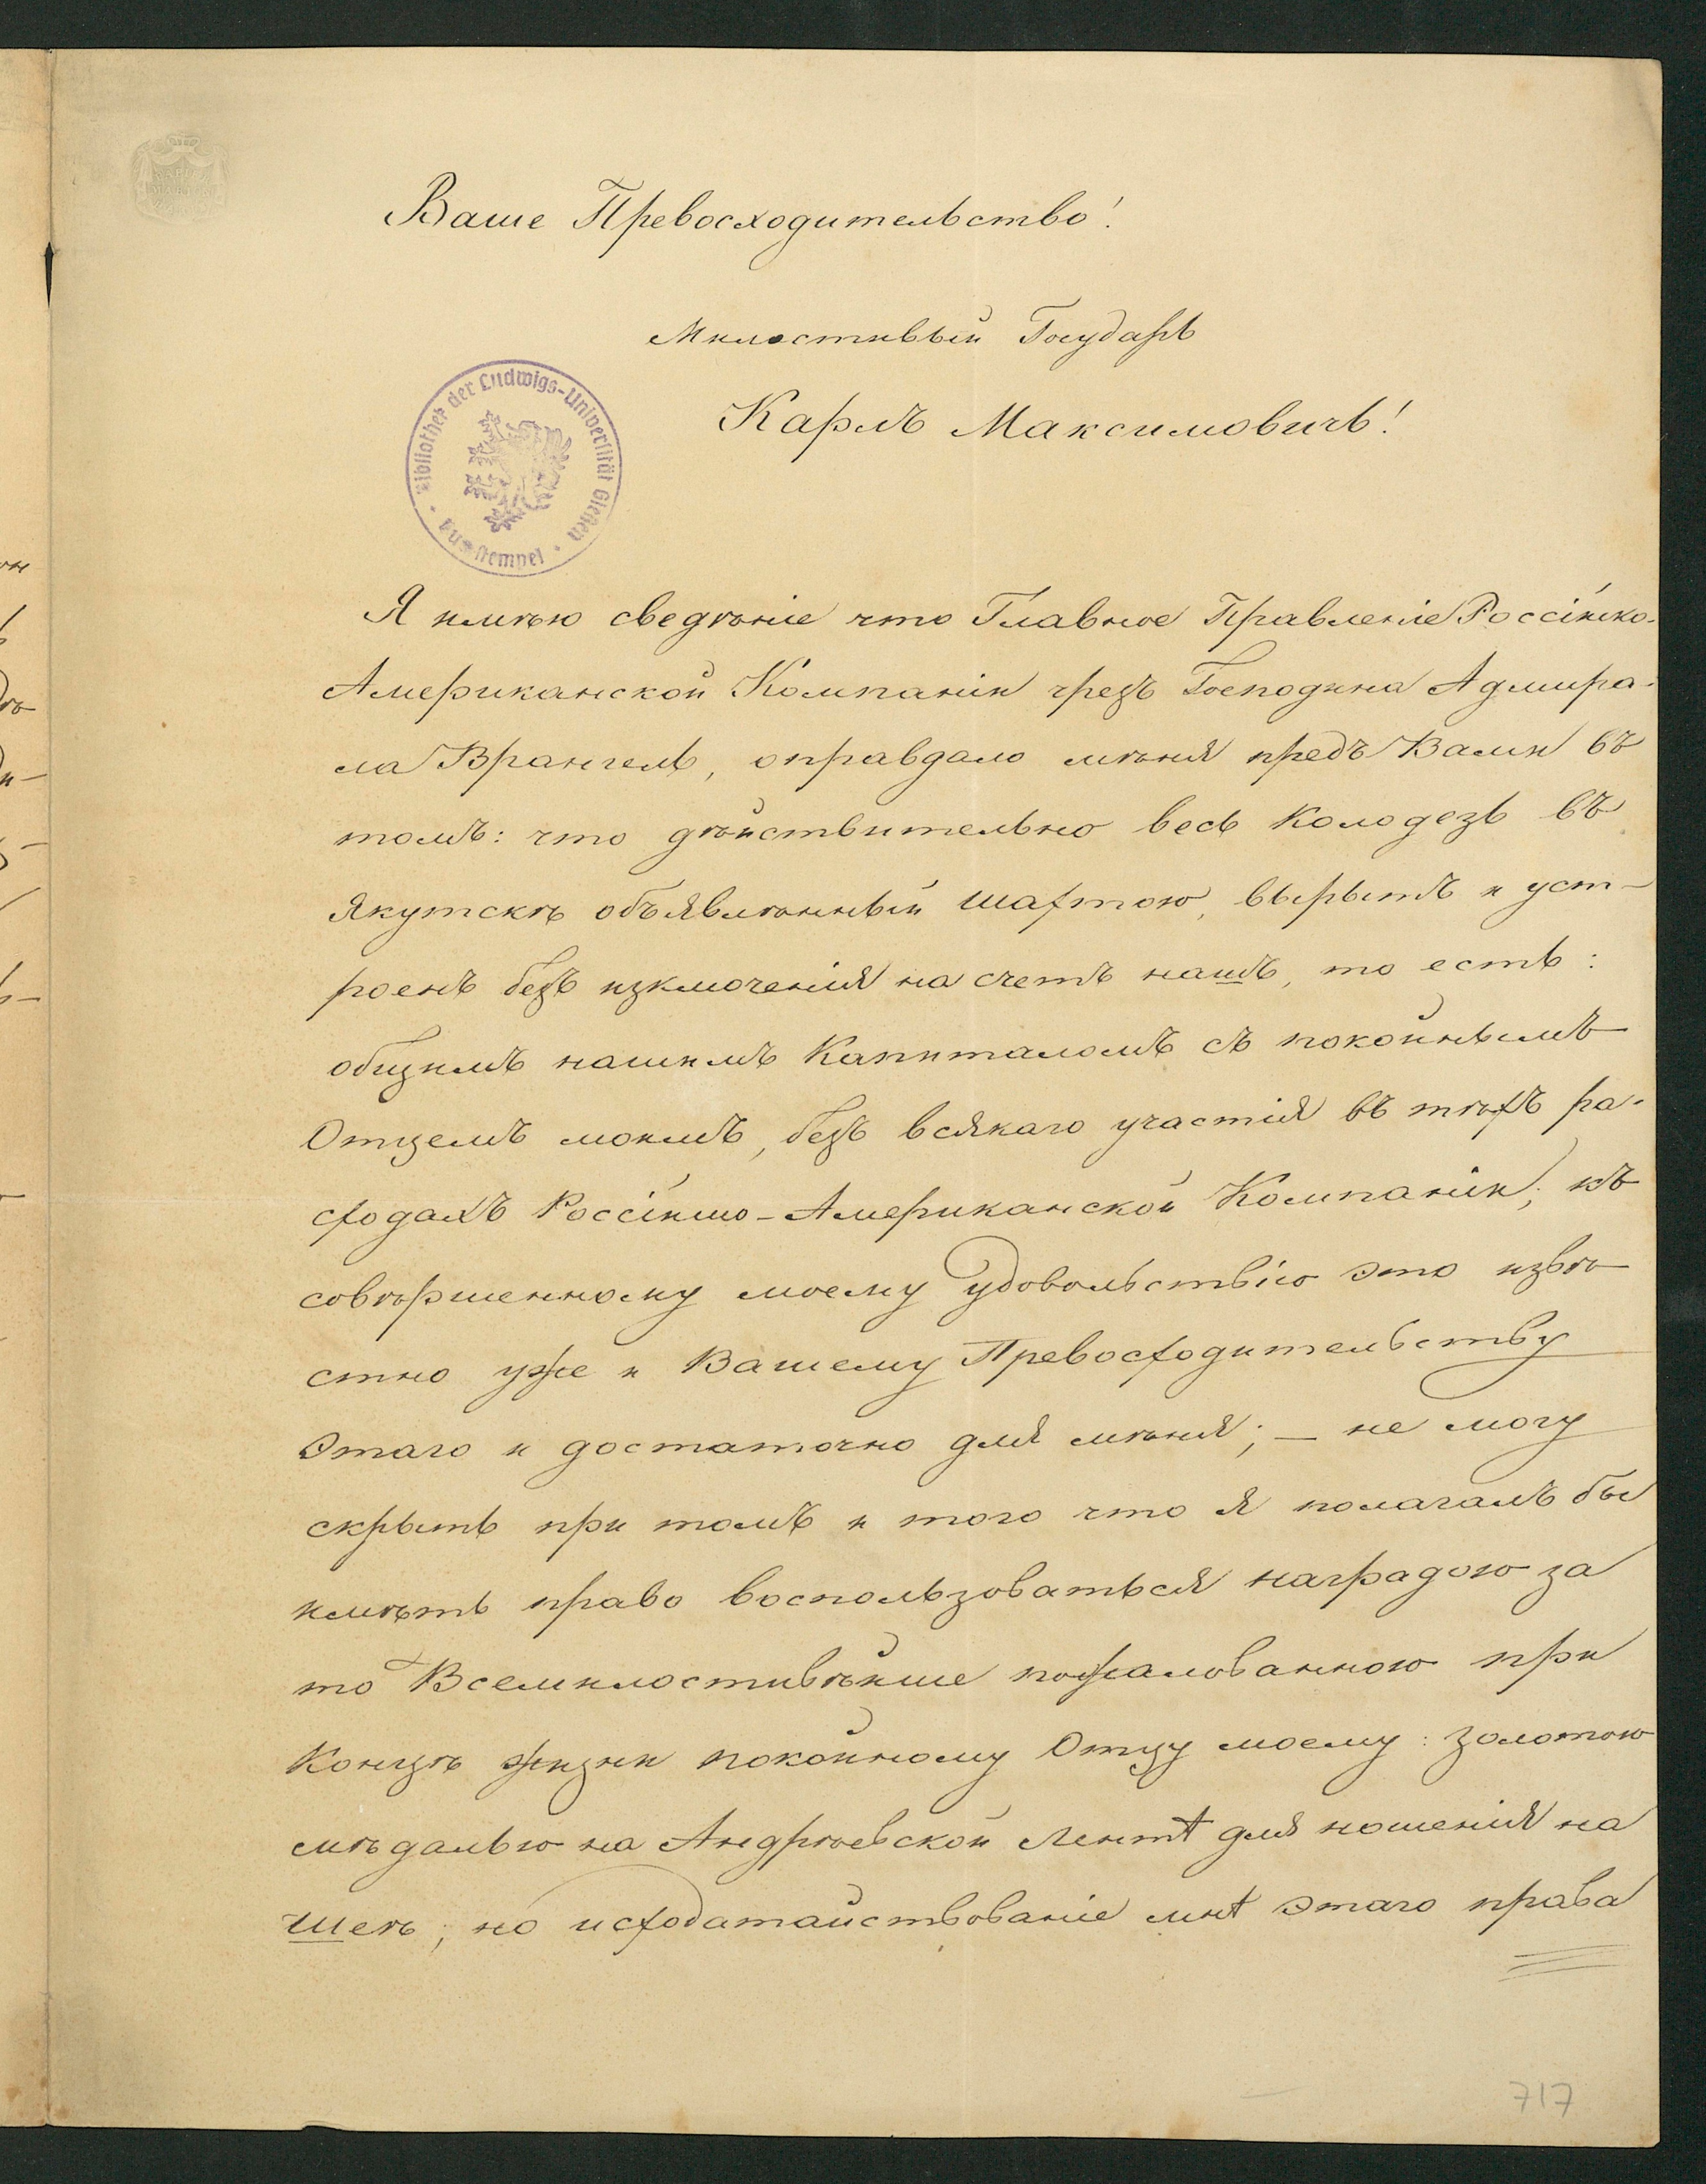 Ваше Превосходительство!
Милостивый Государь
Карлъ Максимовичъ!
Bibliothek der Ludwigs-Universität Gießen
stempel
Я имѣю сведѣніе что Главное Правленіе Россійско-
Американской Компаніи чрезъ Господина Адмира-
ла Врангель, оправдало мѣня предъ Вами въ
томъ: что дѣйствительно весь колодезь въ
Якутскѣ объявлѣнный шахтою, вырытъ и уст-
роенъ безъ изключенія на счетъ нашъ, то есть:
общимъ нашимъ Капиталомъ съ покойнымъ
Отцемъ моимъ, безъ всякаго участія въ тѣхъ ра-
сходахъ Россійско-Американской Компаніи; къ
совѣршенному моему удовольствію это извѣ
стно уже и Вашему Превосходительству
этаго и достаточно для мѣня; — не могу
скрыть при томъ и того что я полагалъ бы
имѣть право воспользоваться наградою за
то Всемилостивѣйше пожалованною при
Концѣ жизни покойному Отцу моему: золотою
мѣдалью на Андрѣевской лентѣ для ношенія на
шеѣ; но исходатайствованіе мнѣ этаго права
717